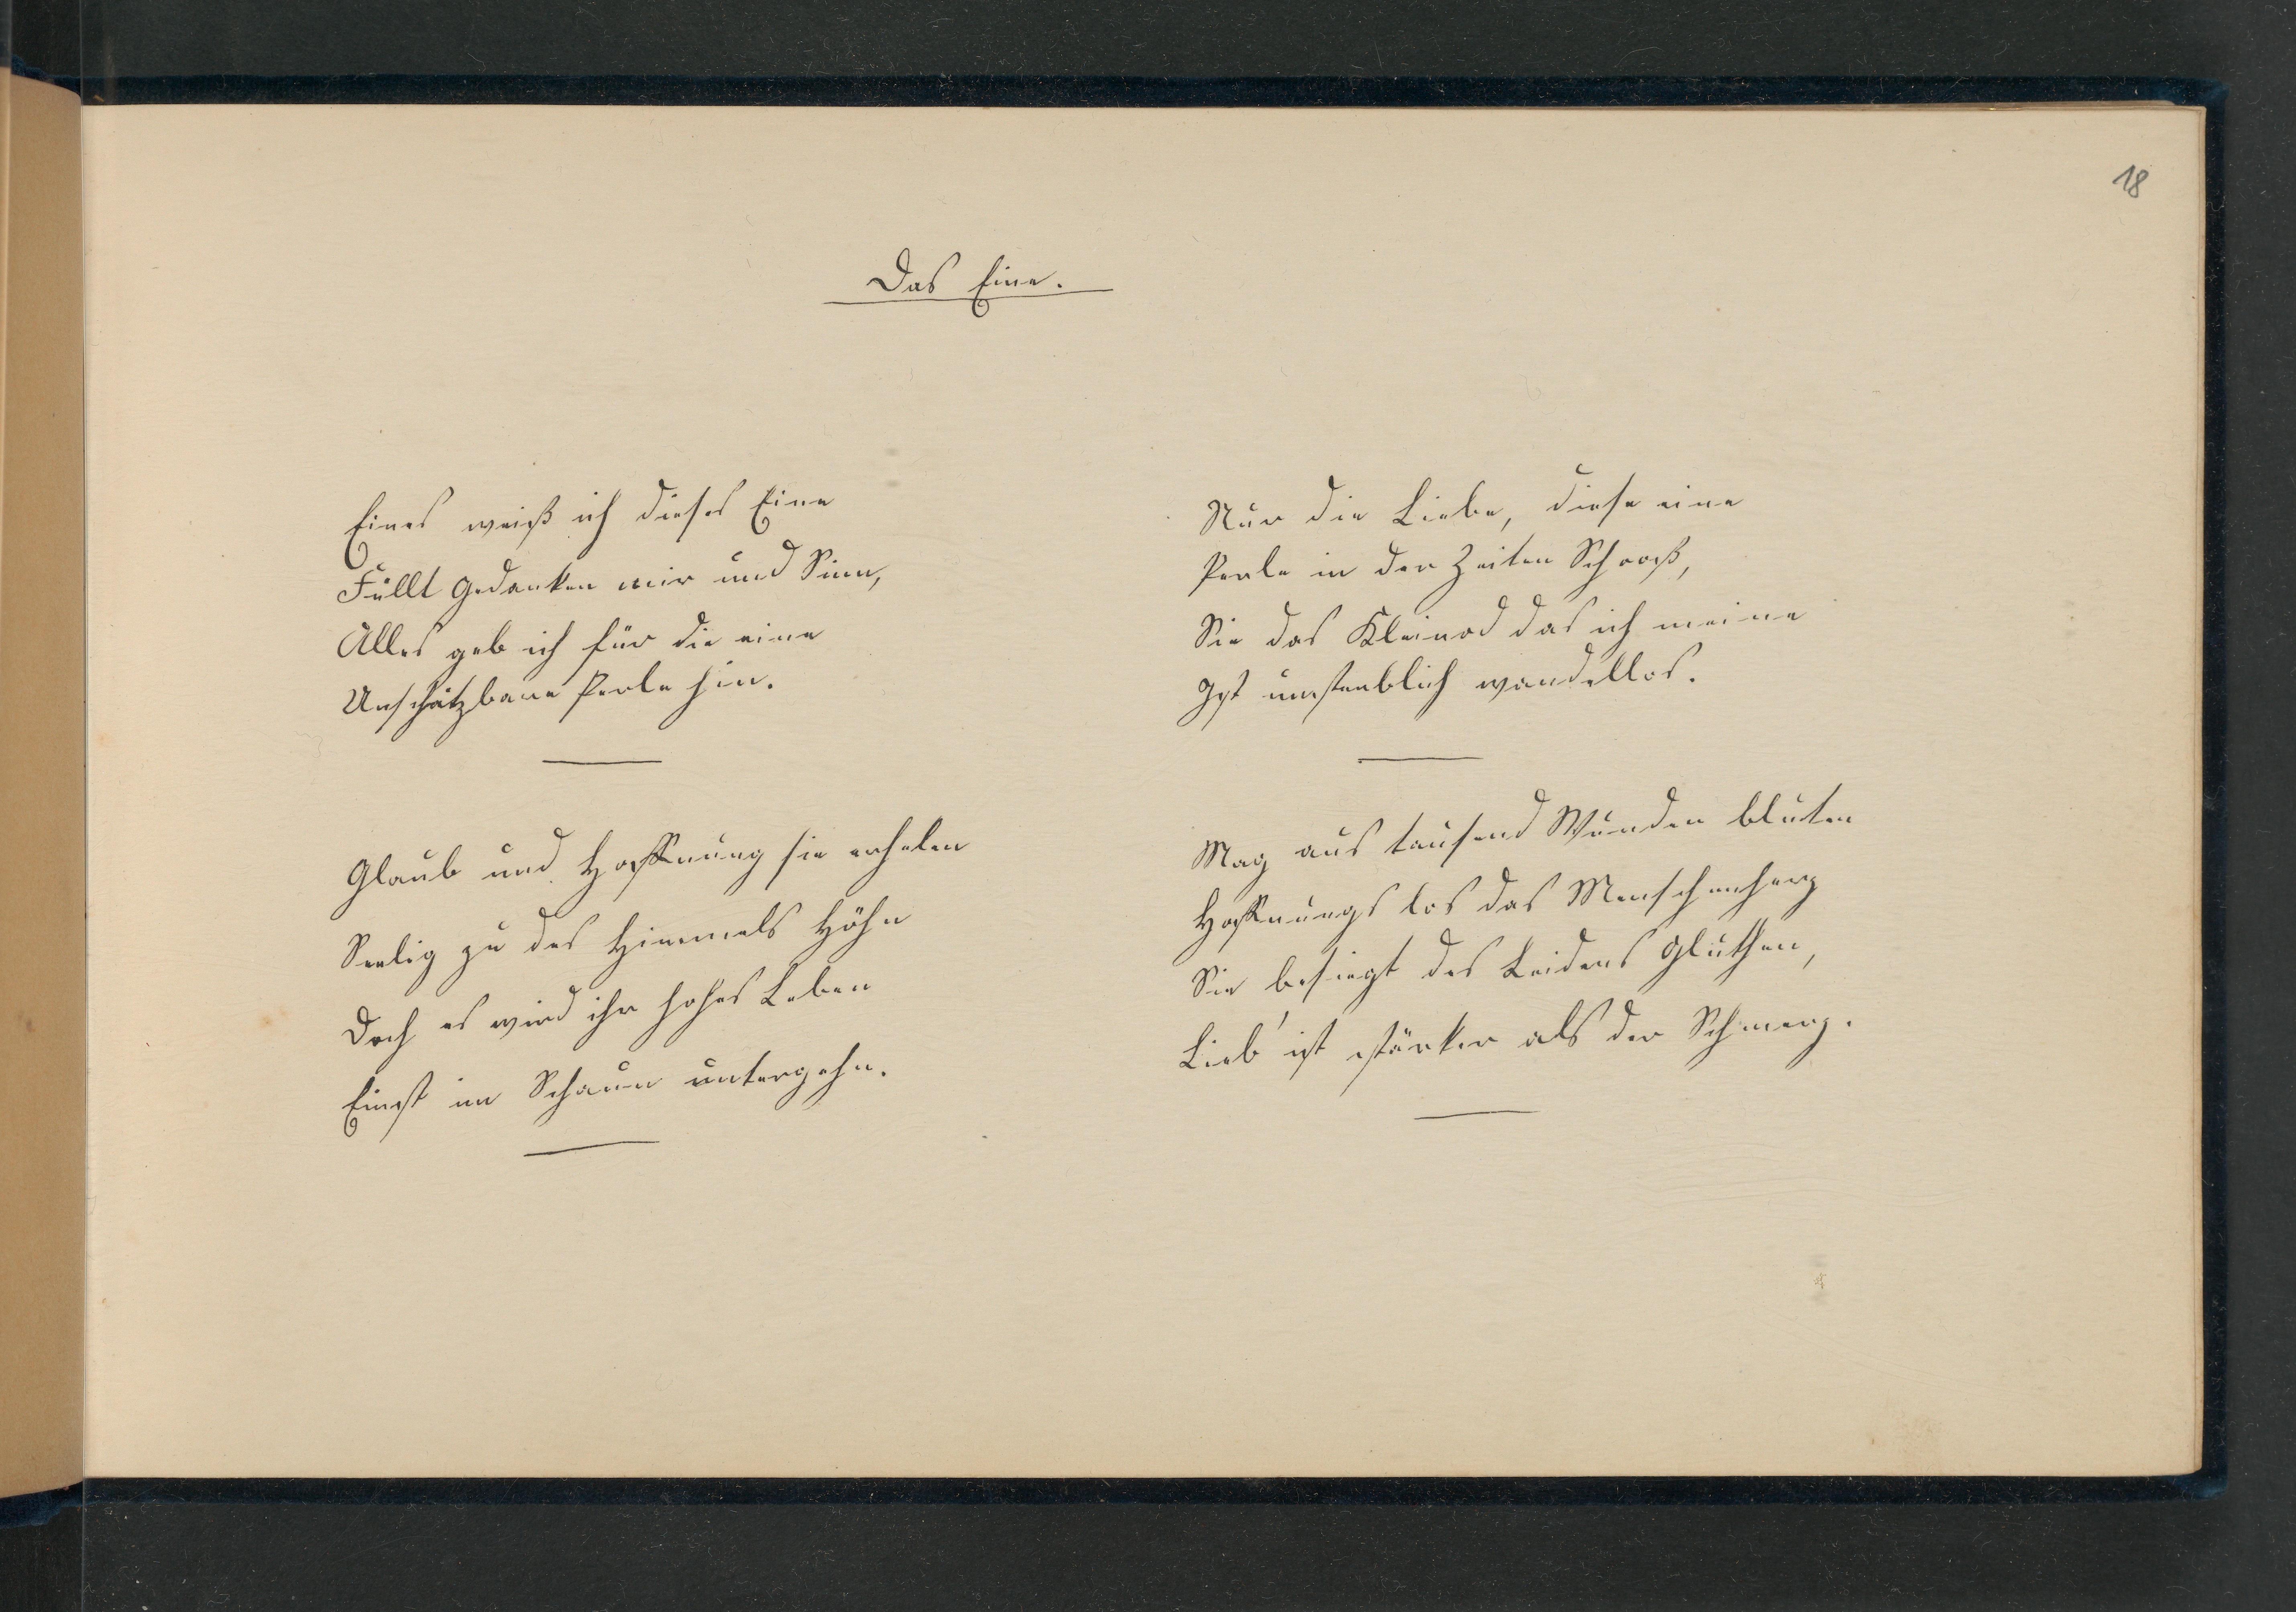 18
Das Eine.
Eines weiß ich dieses Eine
Füllt Gedanken mir und Sinn,
Alles geb ich für die eine
Unschätzbare Perle hin.
Glaub und Hoffnung sie erheben
Seelig zu des Himmels Höhn
Doch es wird ihr hohes Leben
Einst im Schaun untergehn.
Nur die Liebe, diese eine
Perle in der Zeiten Schooß,
Sie das Kleinod das ich meine
Ist unsterblich wandellos.
Mag aus tausend Wunden bluten
Hoffnungslos das Menschenherz
Sie besiegt des Leidens Gluthen,
Lieb' ist stärker als der Schmerz.